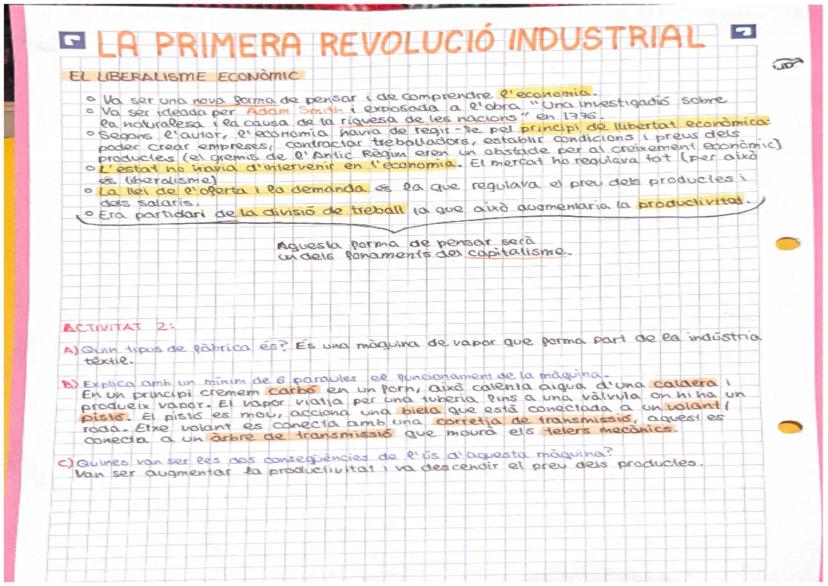 LA PRIMERA REVOLUCIÓ INDUSTRIAL
EL LIBERALISME ECONÒMIC
Va ser una nova forma de pensar i de comprendre l'economia.
Va ser ideada per Adam Smith i exposada a l'obra "Una investigadió sobre
la naturalesa i la causa de la riquesa de les nacions" en 1776.
Segons l'autor, l'economia havia de regir-se pel principi de llibertat econòmica:
poder crear empreses, contractar treballadors, establir condicions i preus dels
productes (el gremis de l'Antic Règim eren un obstacle per al creixement econòmic)
L'estat no havia d'intervenir en l'economia. El mercat ho regulava tot (per això
és liberalisme)
La llei de l'oferta i la demanda és la que regulava el preu dels productes i
dels salaris.
Era partidari de la divisió de treball ja que això augmentaria la productivitat.
Aquesta forma de pensar serà
un dels fonaments del capitalisme.
ACTIVITAT 2:
A) Quin tipus de fàbrica és? És una màquina de vapor que forma part de la indústria
tèxtil.
B) Explica amb un mínim de 6 paraules el funcionament de la màquina.
En un principi cremem carbó en un forn, això calenta aigua d'una caldera i
produeix vapor. El vapor viatja per una tuberia fins a una vàlvula on hi ha un
pistó. El pistó es mou, acciona una biela que està conectada a un volant/
roda. Etxe volant es conecta amb una corretja de transmissió, aquest es
conecta a un arbre de transmissió que mourà els telers mecànics.
C) Quines van ser les dos conseqüències de l'ús d'aquesta màquina?
Van ser augmentar la productivitat i va descendir el preu dels productes.